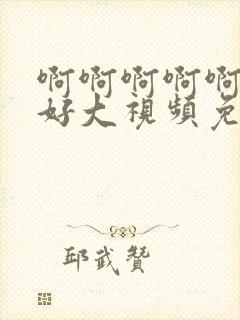 啊啊啊啊啊
好大視頻免
邱武贊